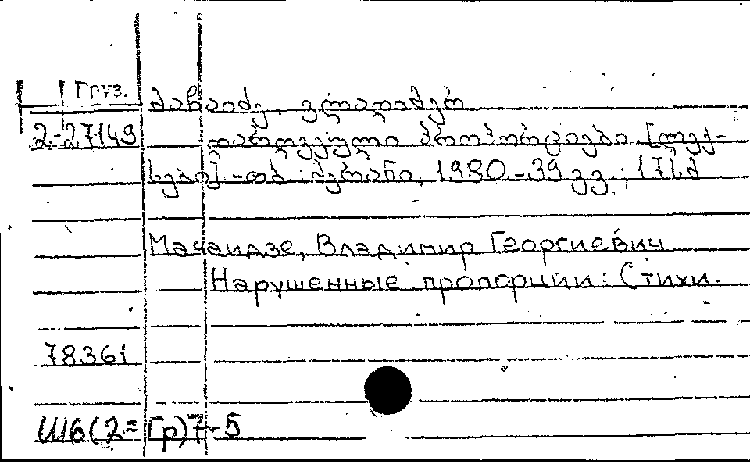 Груз.
მაჩაიძე ვლადიმერ
2-27149
დარღვეული პროპორციები. [ლექ-
სები] -თბ.: მერანი, 1980.-39 გვ.; 17სმ
Мачаидзе, Владимир Георгиевич
Нарушенные пропорции: Стихи.
78361
Ш6(2=Гр)7-5